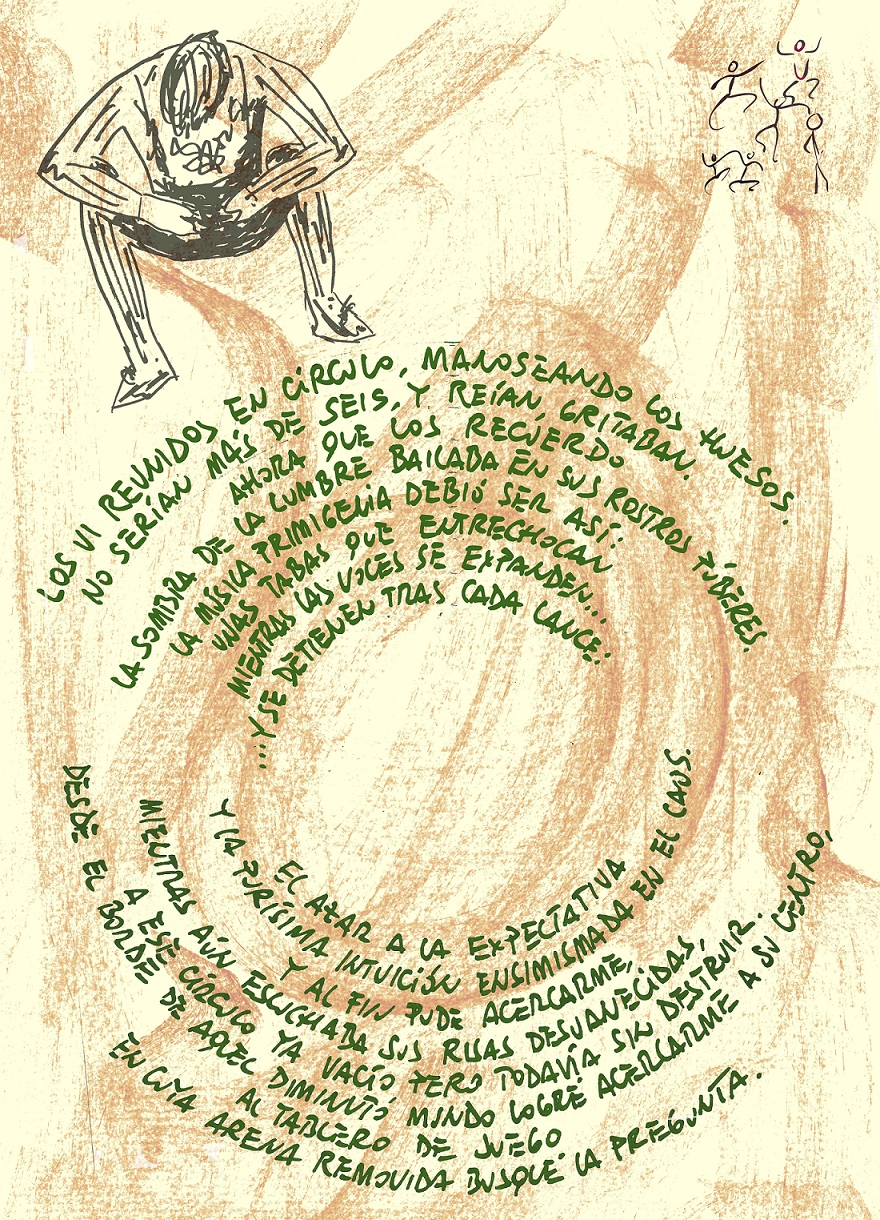 LOS VI REUNIDOS EN CÍRCULO, MANOSEANDO LOS HUESOS.
NO SERÍAN MÁS DE SEIS, Y REÍAN, GRITABAN.
AHORA QUE LOS RECUERDO
LA SOMBRA DE LA LUMBRE BAILABA EN SUS ROSTROS PÚBERES.
LA MÚSICA PRIMIGENIA DEBIÓ SER ASÍ:
UNAS TABAS QUE ENTRECHOCAN
MIENTRAS LAS VOCES SE EXPANDEN...
...Y SE DETIENEN TRAS CADA LANCE:
EL AZAR A LA EXPECTATIVA
Y LA PURÍSIMA INTUICIÓN ENSIMISMADA EN EL CAOS.
Y AL FIN PUDE ACERCARME,
MIENTRAS AÚN ESCUCHABA SUS RISAS DESVANECIDAS,
A ESE CÍRCULO YA VACÍO PERO TODAVÍA SIN DESTRUIR.
DESDE EL BORDE DE AQUEL DIMINUTO MUNDO LOGRÉ ACERCARME A SU CENTRO,
AL TABLERO DE JUEGO
EN CUYA ARENA REMOVIDA BUSQUÉ LA PREGUNTA.